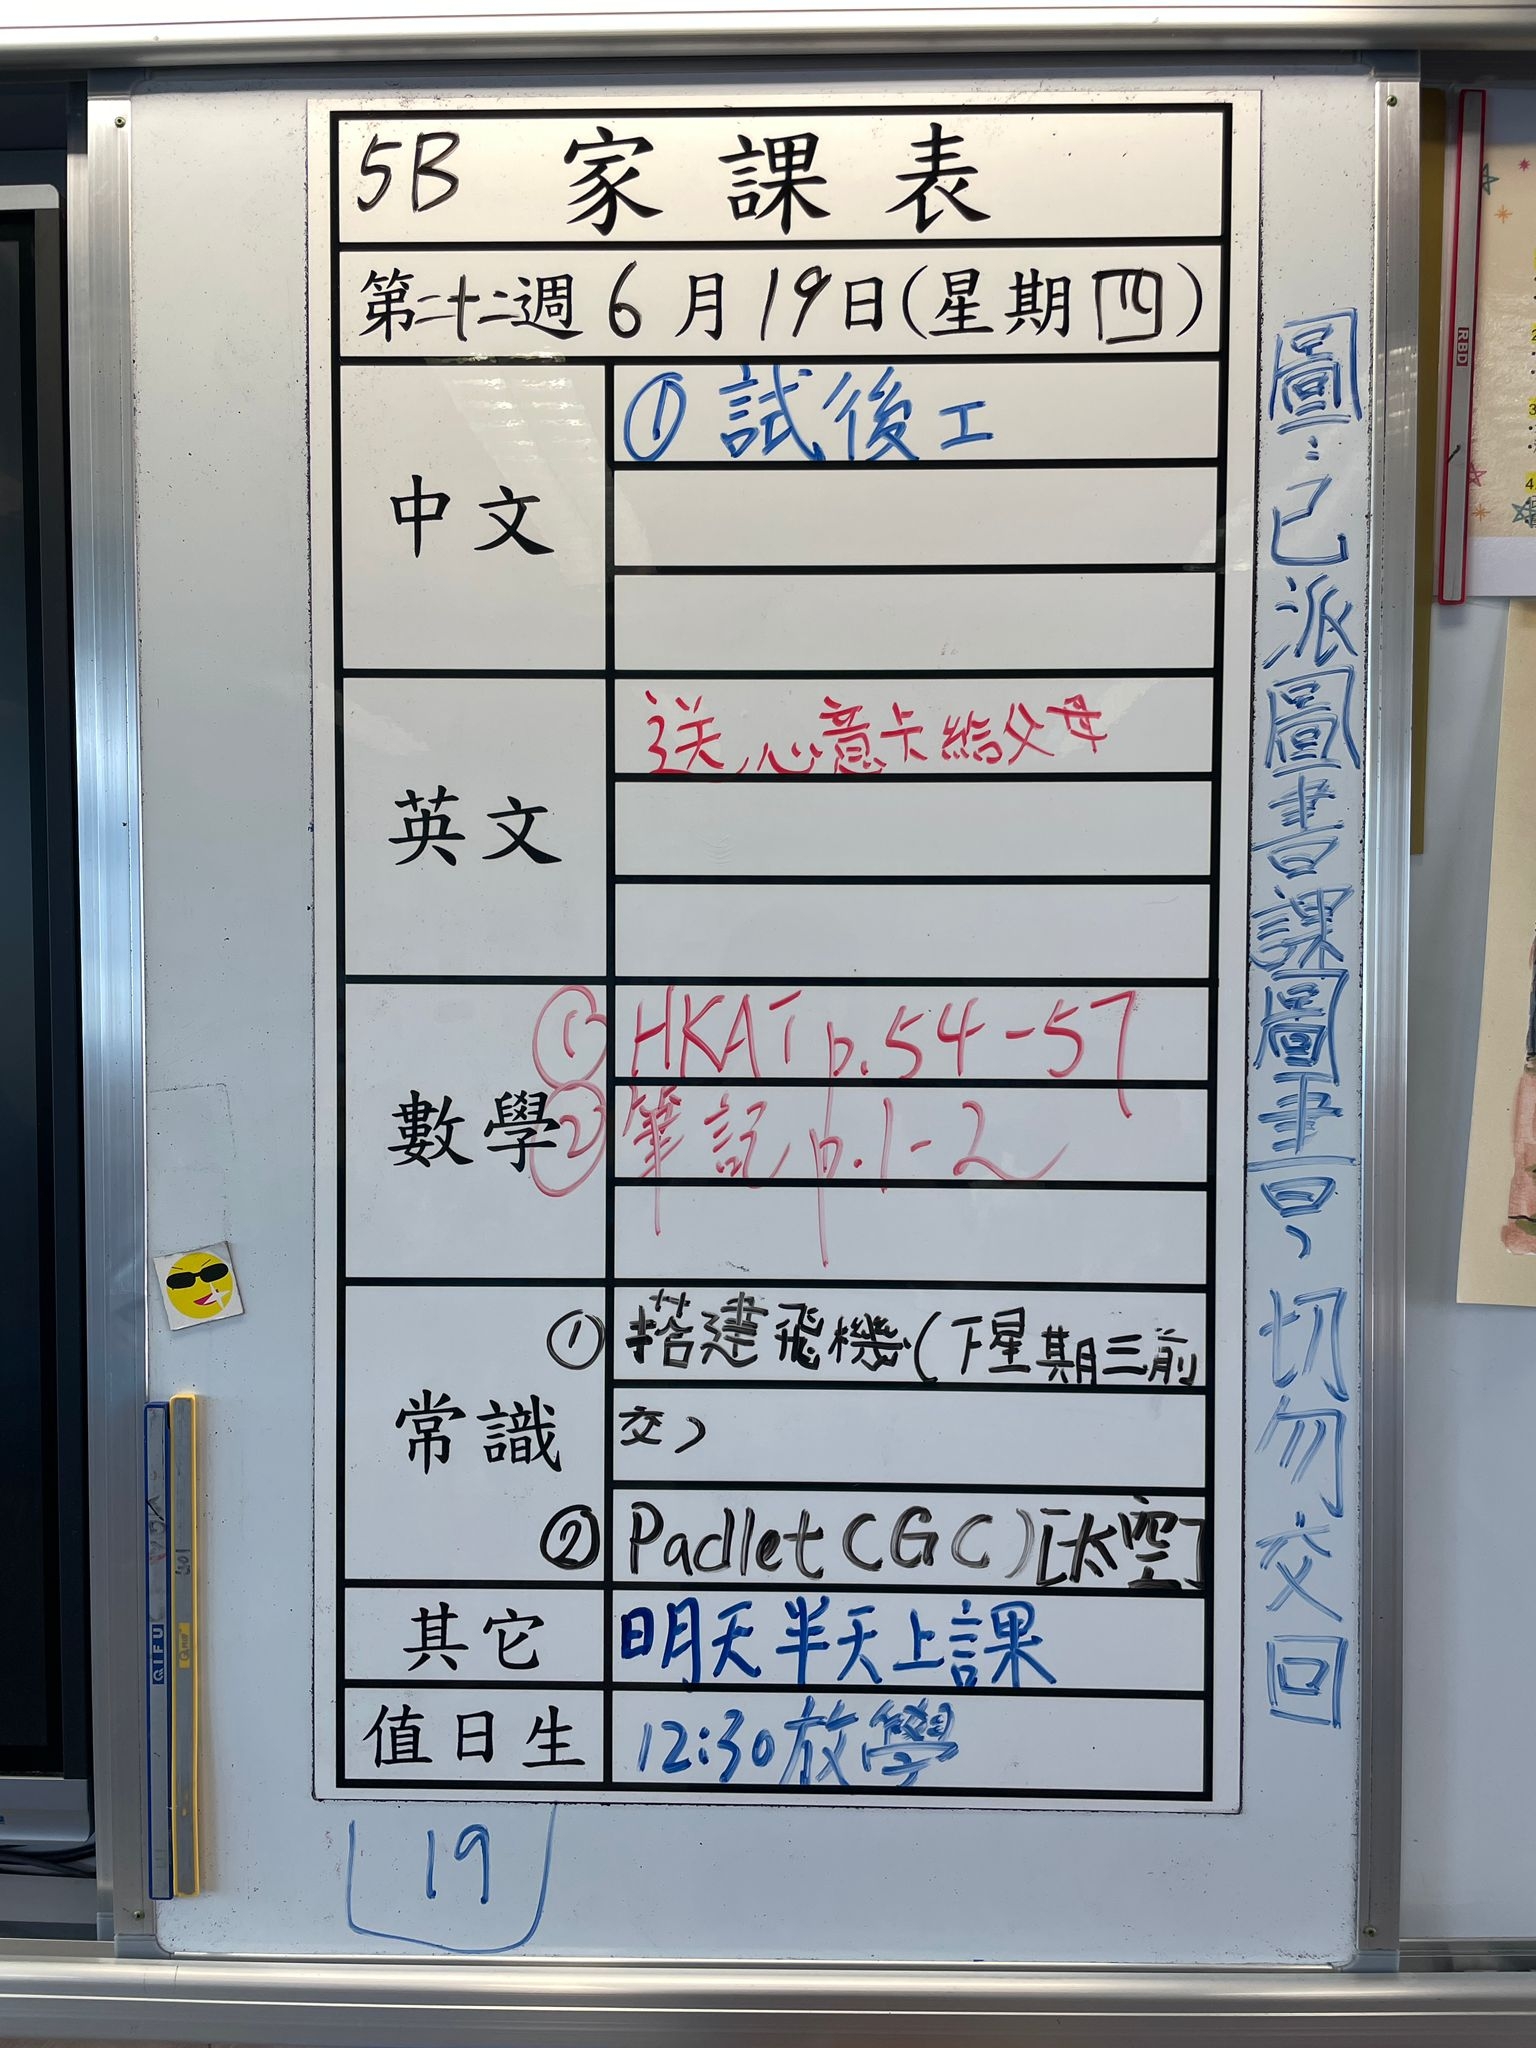 5B 家課表
第二十二週 6月19日(星期四)
中文
① 試後工
英文
送心意卡給父母
數學
① HKAT p.54-57
② 筆記 p.1-2
常識
① 搭建飛機(下星期三前
交)
② Padlet (GC) [太空]
其它
明天半天上課
值日生
12:30放學
19
圖:已派圖書課圖畫回，切勿交回
RBD
QIFU